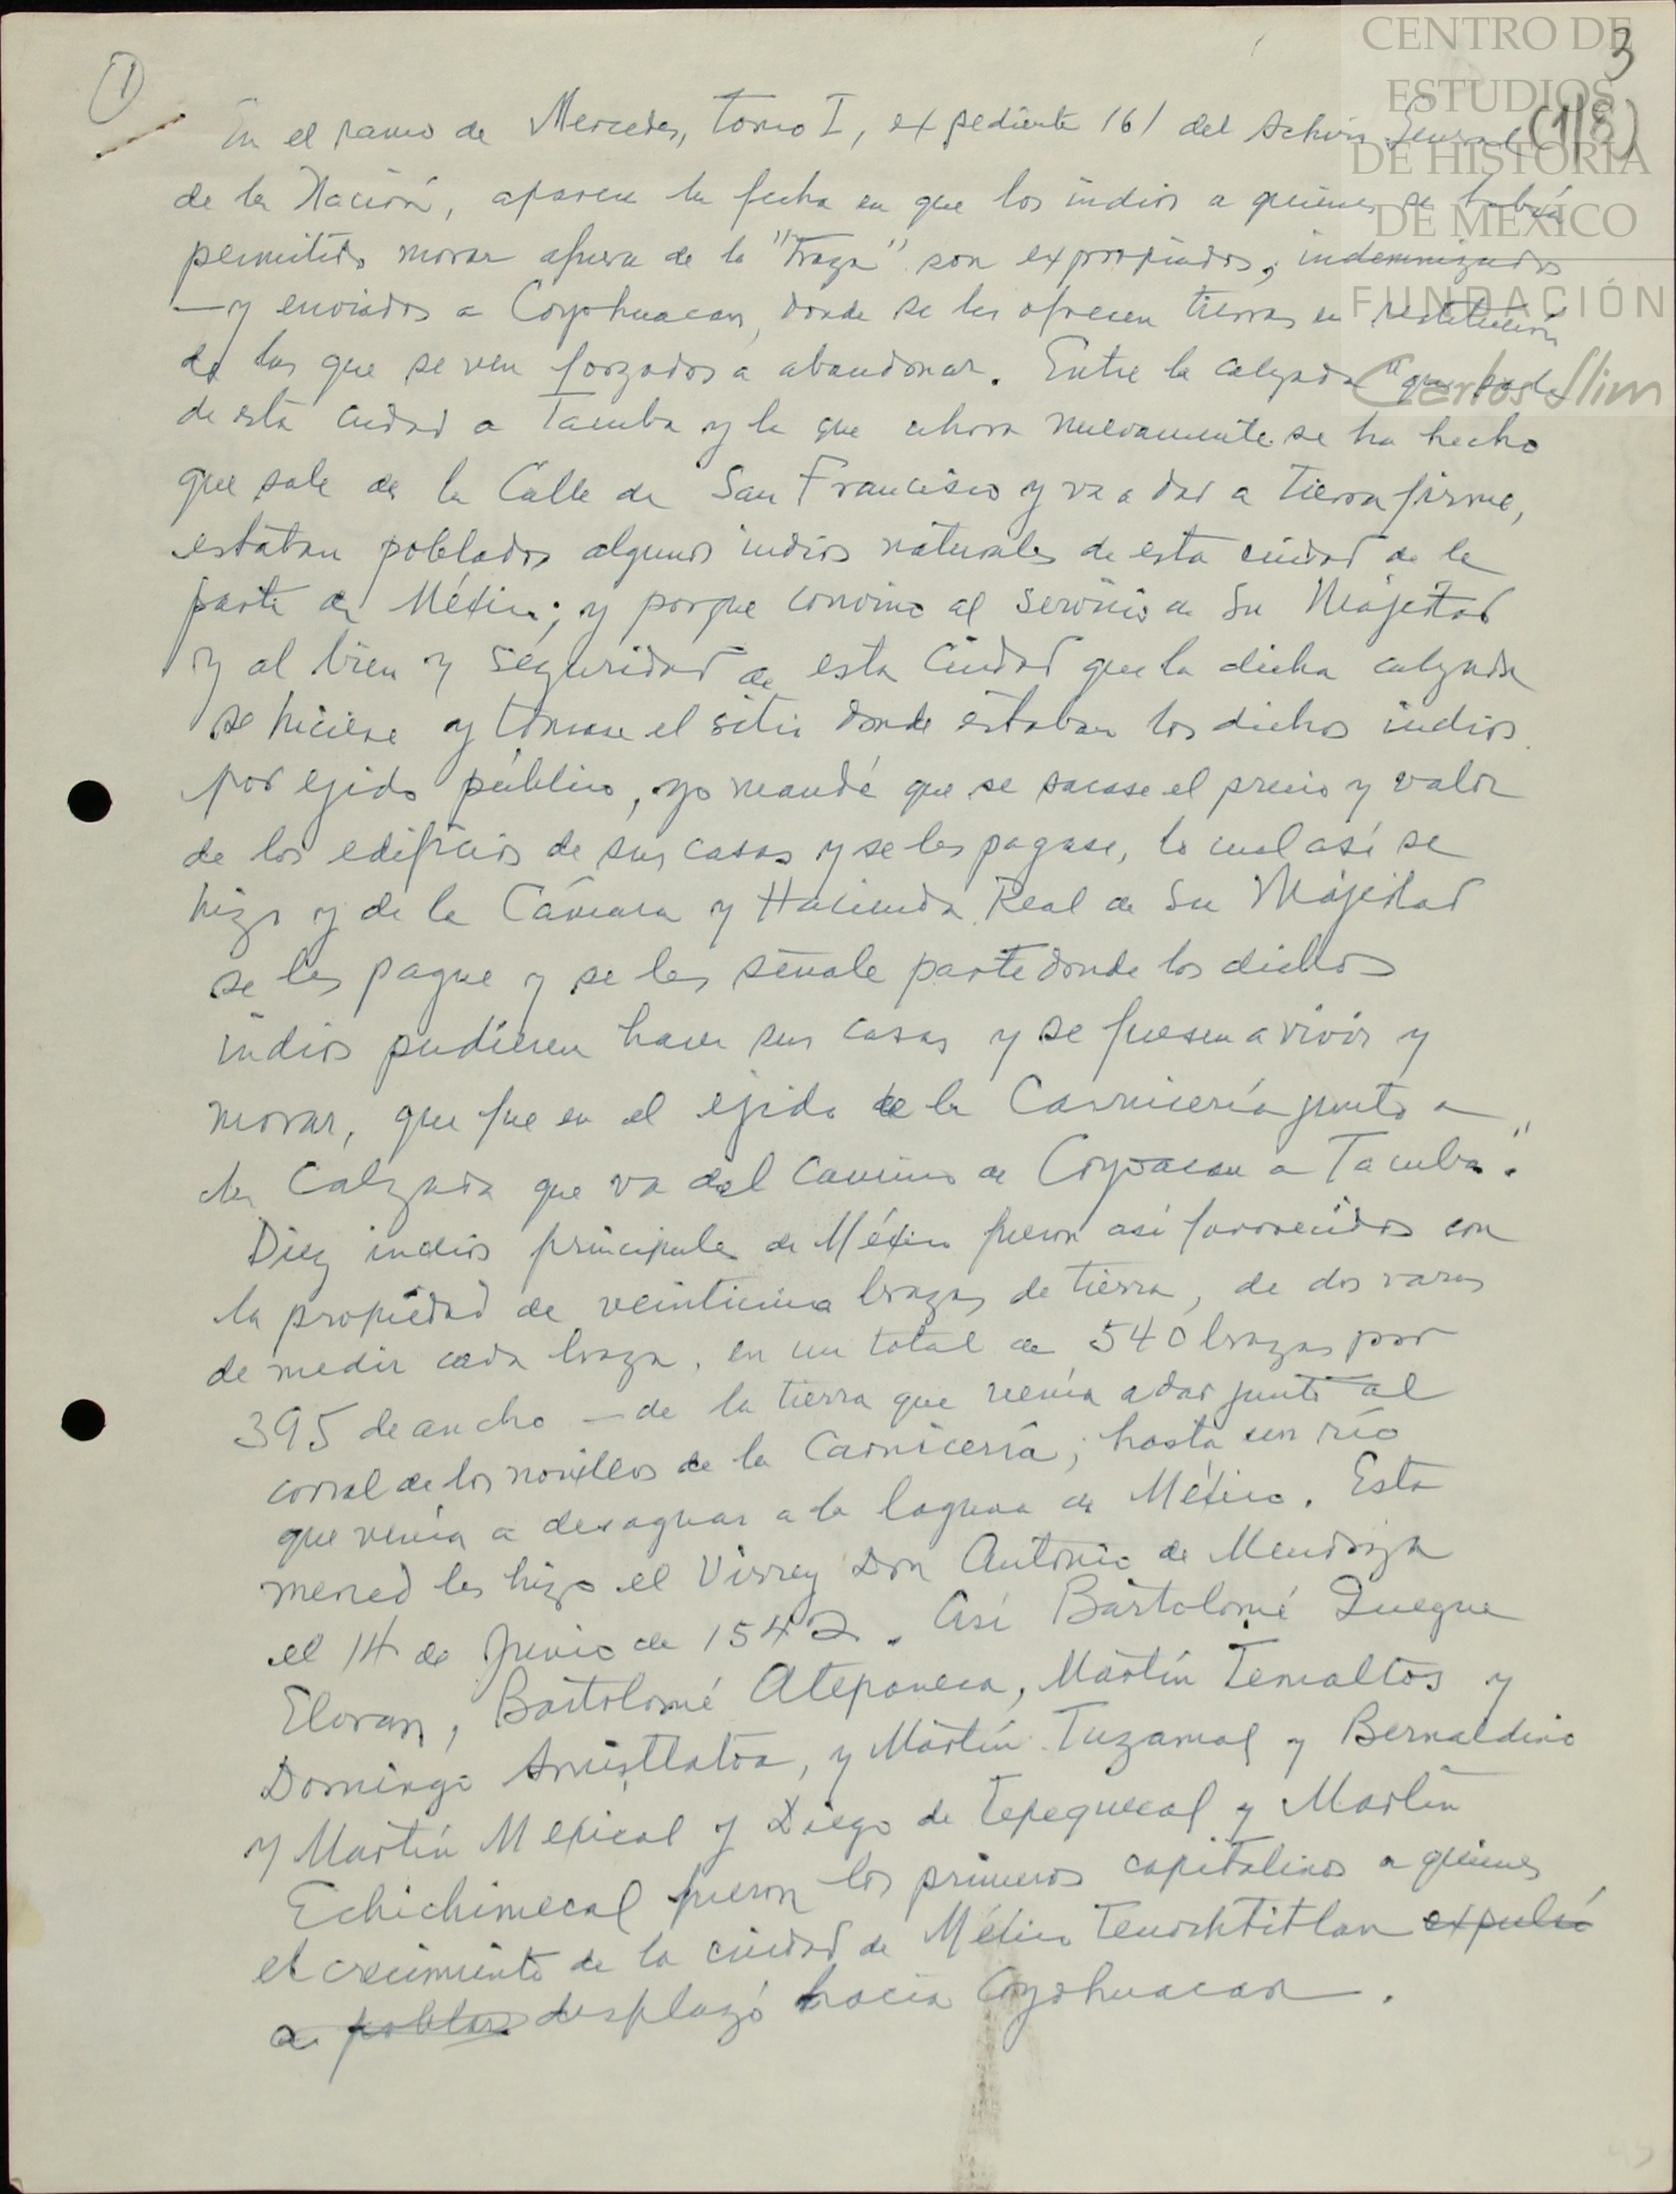 CENTRO DE
ESTUDIOS
DE HISTORIA
DE MÉXICO
FUNDACIÓN
Carlos Slim
3
(1/8)
1
En el ramo de Mercedes, Tomo I, expediente 161 del Archivo General
de la Nación, aparece la fecha en que los indios a quienes se había
permitido morar afuera de la "Traza" son expropiados, indemnizados
—y enviados a Coyohuacan, donde se les ofrecen tierras en restitución
de las que se ven forzados a abandonar. Entre la calzada "que sale
de esta ciudad a Tacuba y la que ahora nuevamente se ha hecho
que sale de la Calle de San Francisco y va a dar a tierra firme,
estaban poblados algunos indios naturales de esta ciudad de la
parte de México; y porque convino al servicio de Su Majestad
y al bien y seguridad de esta Ciudad que la dicha calzada
se hiciese y tomase el sitio donde estaban los dichos indios
por ejido público, yo mandé que se sacase el precio y valor
de los edificios de sus casas y se les pagase, lo cual así se
hizo y de la Cámara y Hacienda Real de Su Majestad
se les pague y se les señale parte donde los dichos
indios pudiesen hacer sus casas y se fuesen a vivir y
morar, que fue en el ejido de la Carnicería junto a
la Calzada que va del camino de Coyoacan a Tacuba".
Diez indios principales de México fueron así favorecidos con
la propiedad de veinticinco brazas de tierra, de dos varas
de medir cada braza, en un total de 540 brazas por
395 de ancho — de la tierra que venía a dar junto al
corral de los novillos de la Carnicería, hasta un río
que venía a desaguar a la laguna de México. Esta
merced les hizo el Virrey Don Antonio de Mendoza
el 14 de junio de 1542. Así Bartolomé Quegue
Eloran, Bartolomé Atepaneca, Martín Temaltos y
Domingo Amistlatoa, y Martín Tuzamal y Bernaldino
y Martín Mexical y Diego de Tepequecal y Martín
Echichimecal fueron los primeros capitalinos a quienes
el crecimiento de la ciudad de México Tenochtitlan expulsó
a poblar desplazó hacia Coyohuacan.